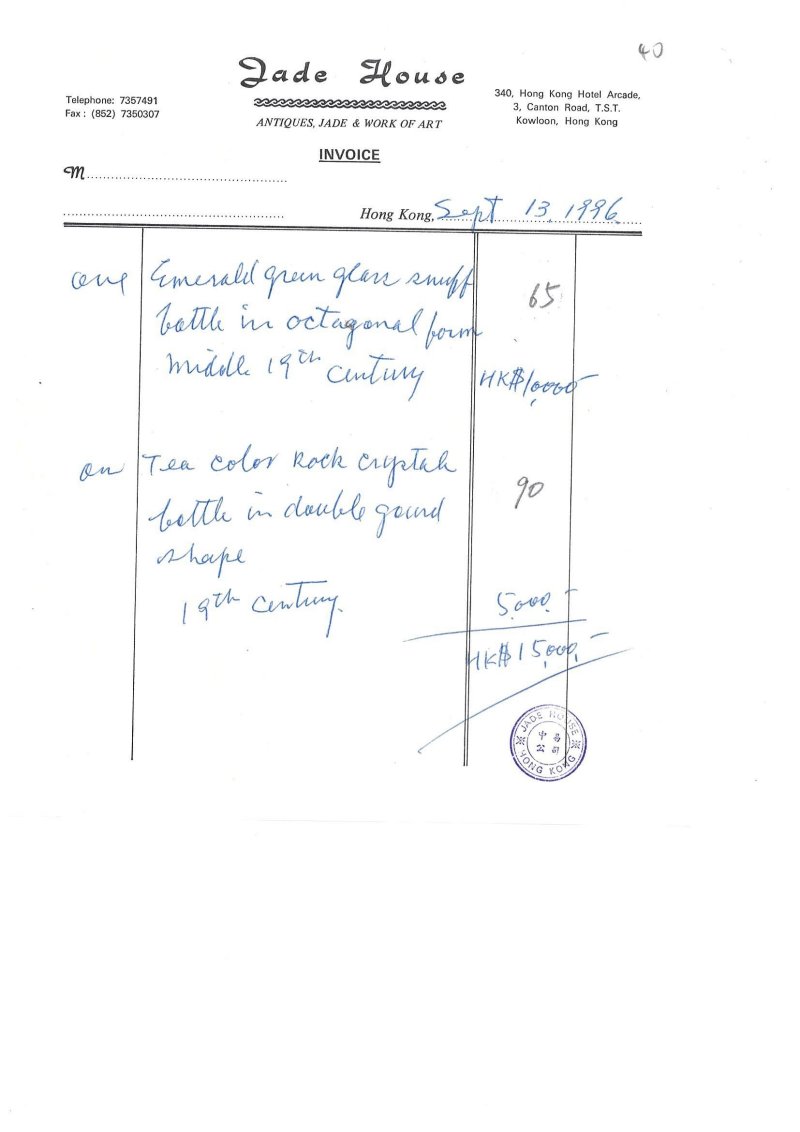 40
Jade House
Telephone: 7357491
Fax : (852) 7350307
ANTIQUES, JADE & WORK OF ART
340, Hong Kong Hotel Arcade,
3, Canton Road, T.S.T.
Kowloon, Hong Kong
INVOICE
M
Hong Kong, Sept 13, 1996
one Emerald green glass snuff
65
bottle in octagonal form
middle 19th century HK$10,000-
on Tea color Rock crystal
90
bottle in double gourd
shape
19th century. 5,000.-
HK$15,000.-
JADE HOUSE
公司
HONG KONG